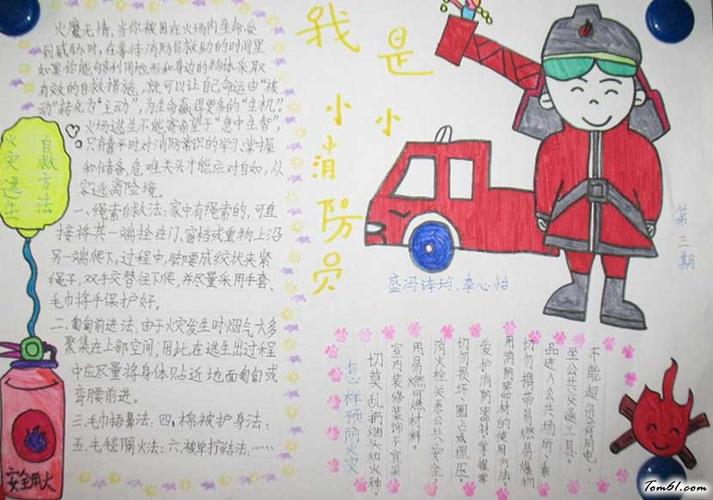 我是小小消防员
火灾逃生
自救方法
火魔无情,当你被困在火场内生命受
到威胁时,在等待消防员救助的时间里
如果你能够利用地形和身边的物体采取
有效的自救措施,就可以让自己命运由"被
动"转化为"主动",为生命赢得更多的"生机"。
火场逃生不能寄希望于"急中生智",
只有靠平时对消防常识的学习、掌握
和储备,危难关头才能应对自如,从
容逃离险境。
一、绳索自救法:家中有绳索的,可直
接将其一端拴在门、窗档或重物上沿
另一端爬下,过程中,脚要成绞状夹紧
绳子,双手交替往下爬,并尽量采用手套、
毛巾将手保护好。
二、匍匐前进法,由于火灾发生时烟气大多
聚集在上部空间,因此,在逃生出过程
中应尽量将身体贴近地面匍匐或
弯腰前进。
三、毛巾捂鼻法:四、棉被护身法:
五、毛毯隔火法:六、被单拧结法:……
安全用火
第三期
盛冯诗玲、李心怡
不能超负荷用电。
坐公共交通工具。
品进入公共场所、乘
切勿携带易燃易爆物
用消防器材的使用方法。
爱护消防器材掌握常
切勿损坏、圈占或埋压。
消火栓关系公共安全,
用易燃可燃材料。
室内装修装饰不宜采
切莫乱扔烟头和火种。
怎样预防火灾
Tom61.com